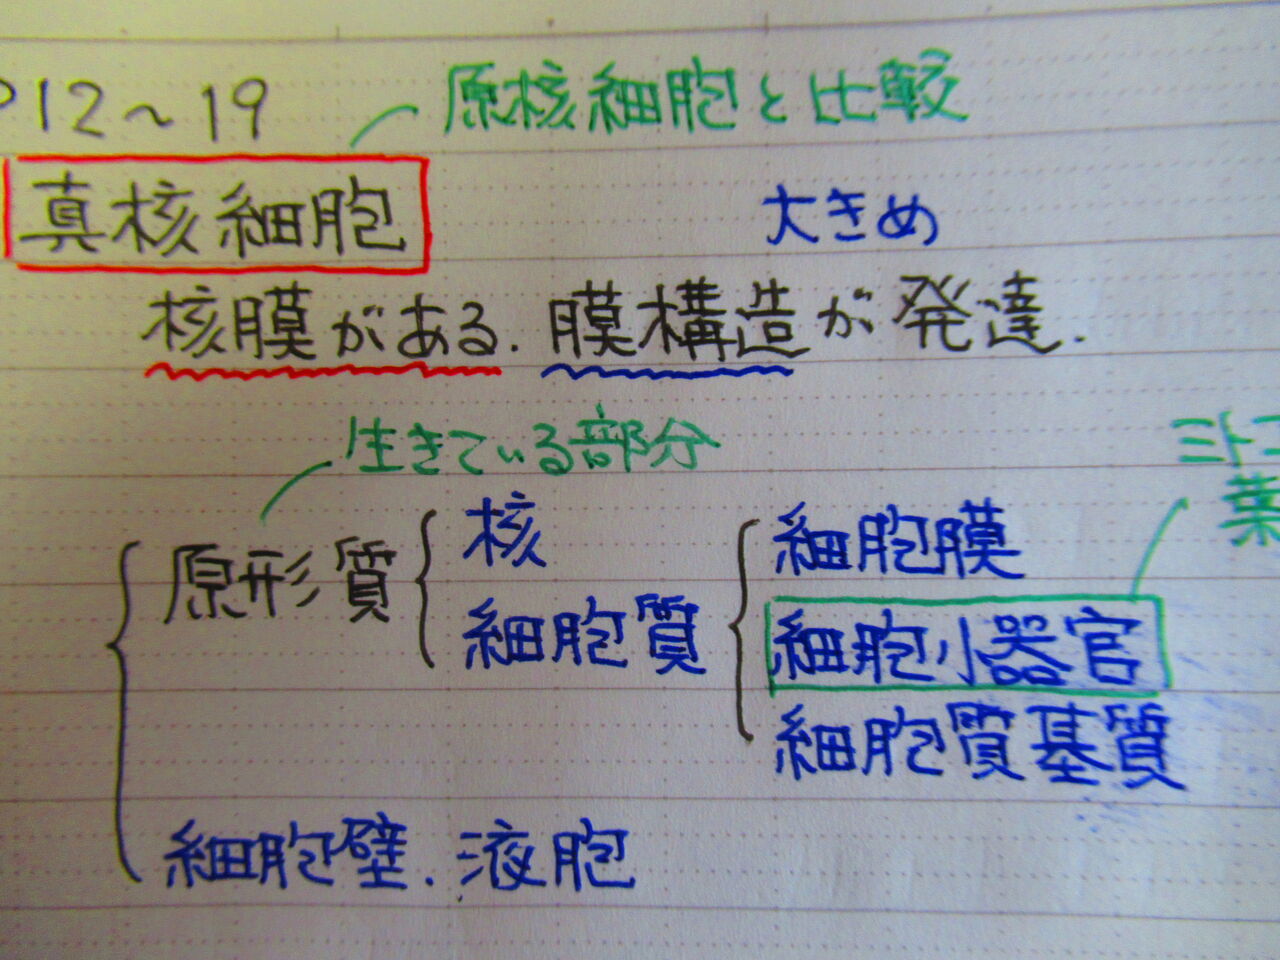 P12～19
原核細胞と比較
真核細胞
大きめ
核膜がある. 膜構造が発達.
生きている部分
ミトコ
葉
原形質
核
細胞質
細胞膜
細胞小器官
細胞質基質
細胞壁. 液胞